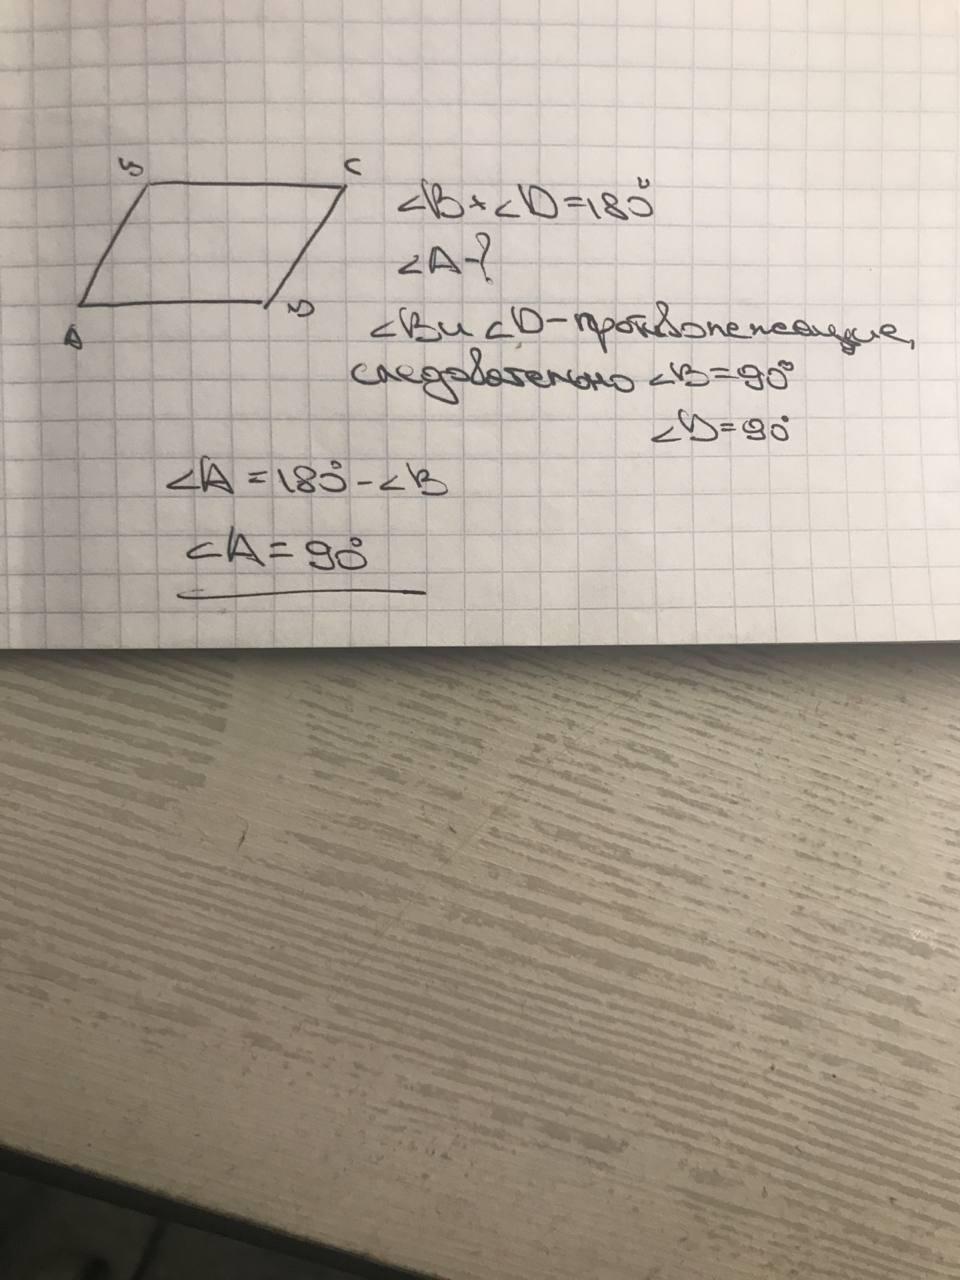 B
C
A
D
∠B+∠D=180°
∠A-?
∠B и ∠D - противолежащие,
следовательно ∠B=90°
∠D=90°
∠A=180°-∠B
∠A=90°